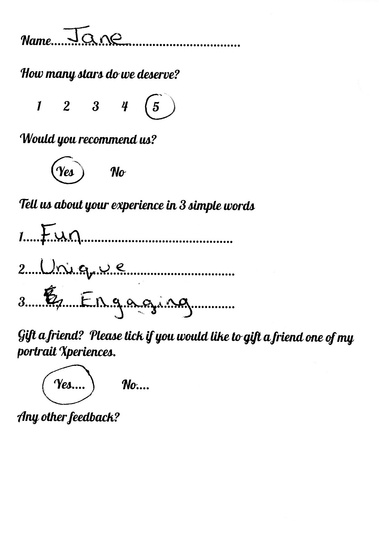 Name....Jane
How many stars do we deserve?
1 2 3 4 5
Would you recommend us?
Yes No
Tell us about your experience in 3 simple words
1.....Fun
2....Unique
3.... Engaging
Gift a friend? Please tick if you would like to gift a friend one of my
portrait Xperiences.
Yes.... No....
Any other feedback?